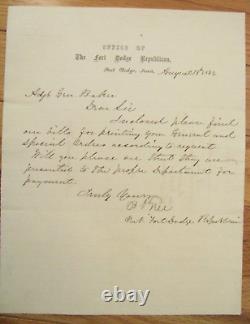 OFFICE OF
The Fort Dodge Republican,
Fort Dodge, Iowa, August 18
Adjt Gen Baker
Dear Sir
Inclosed please find
our bills for printing your General and
Special Orders according to request
Will you please see that they are
presented to the proper Department for
payment.
Truly Yours
B
Pub. Fort Dodge Republican